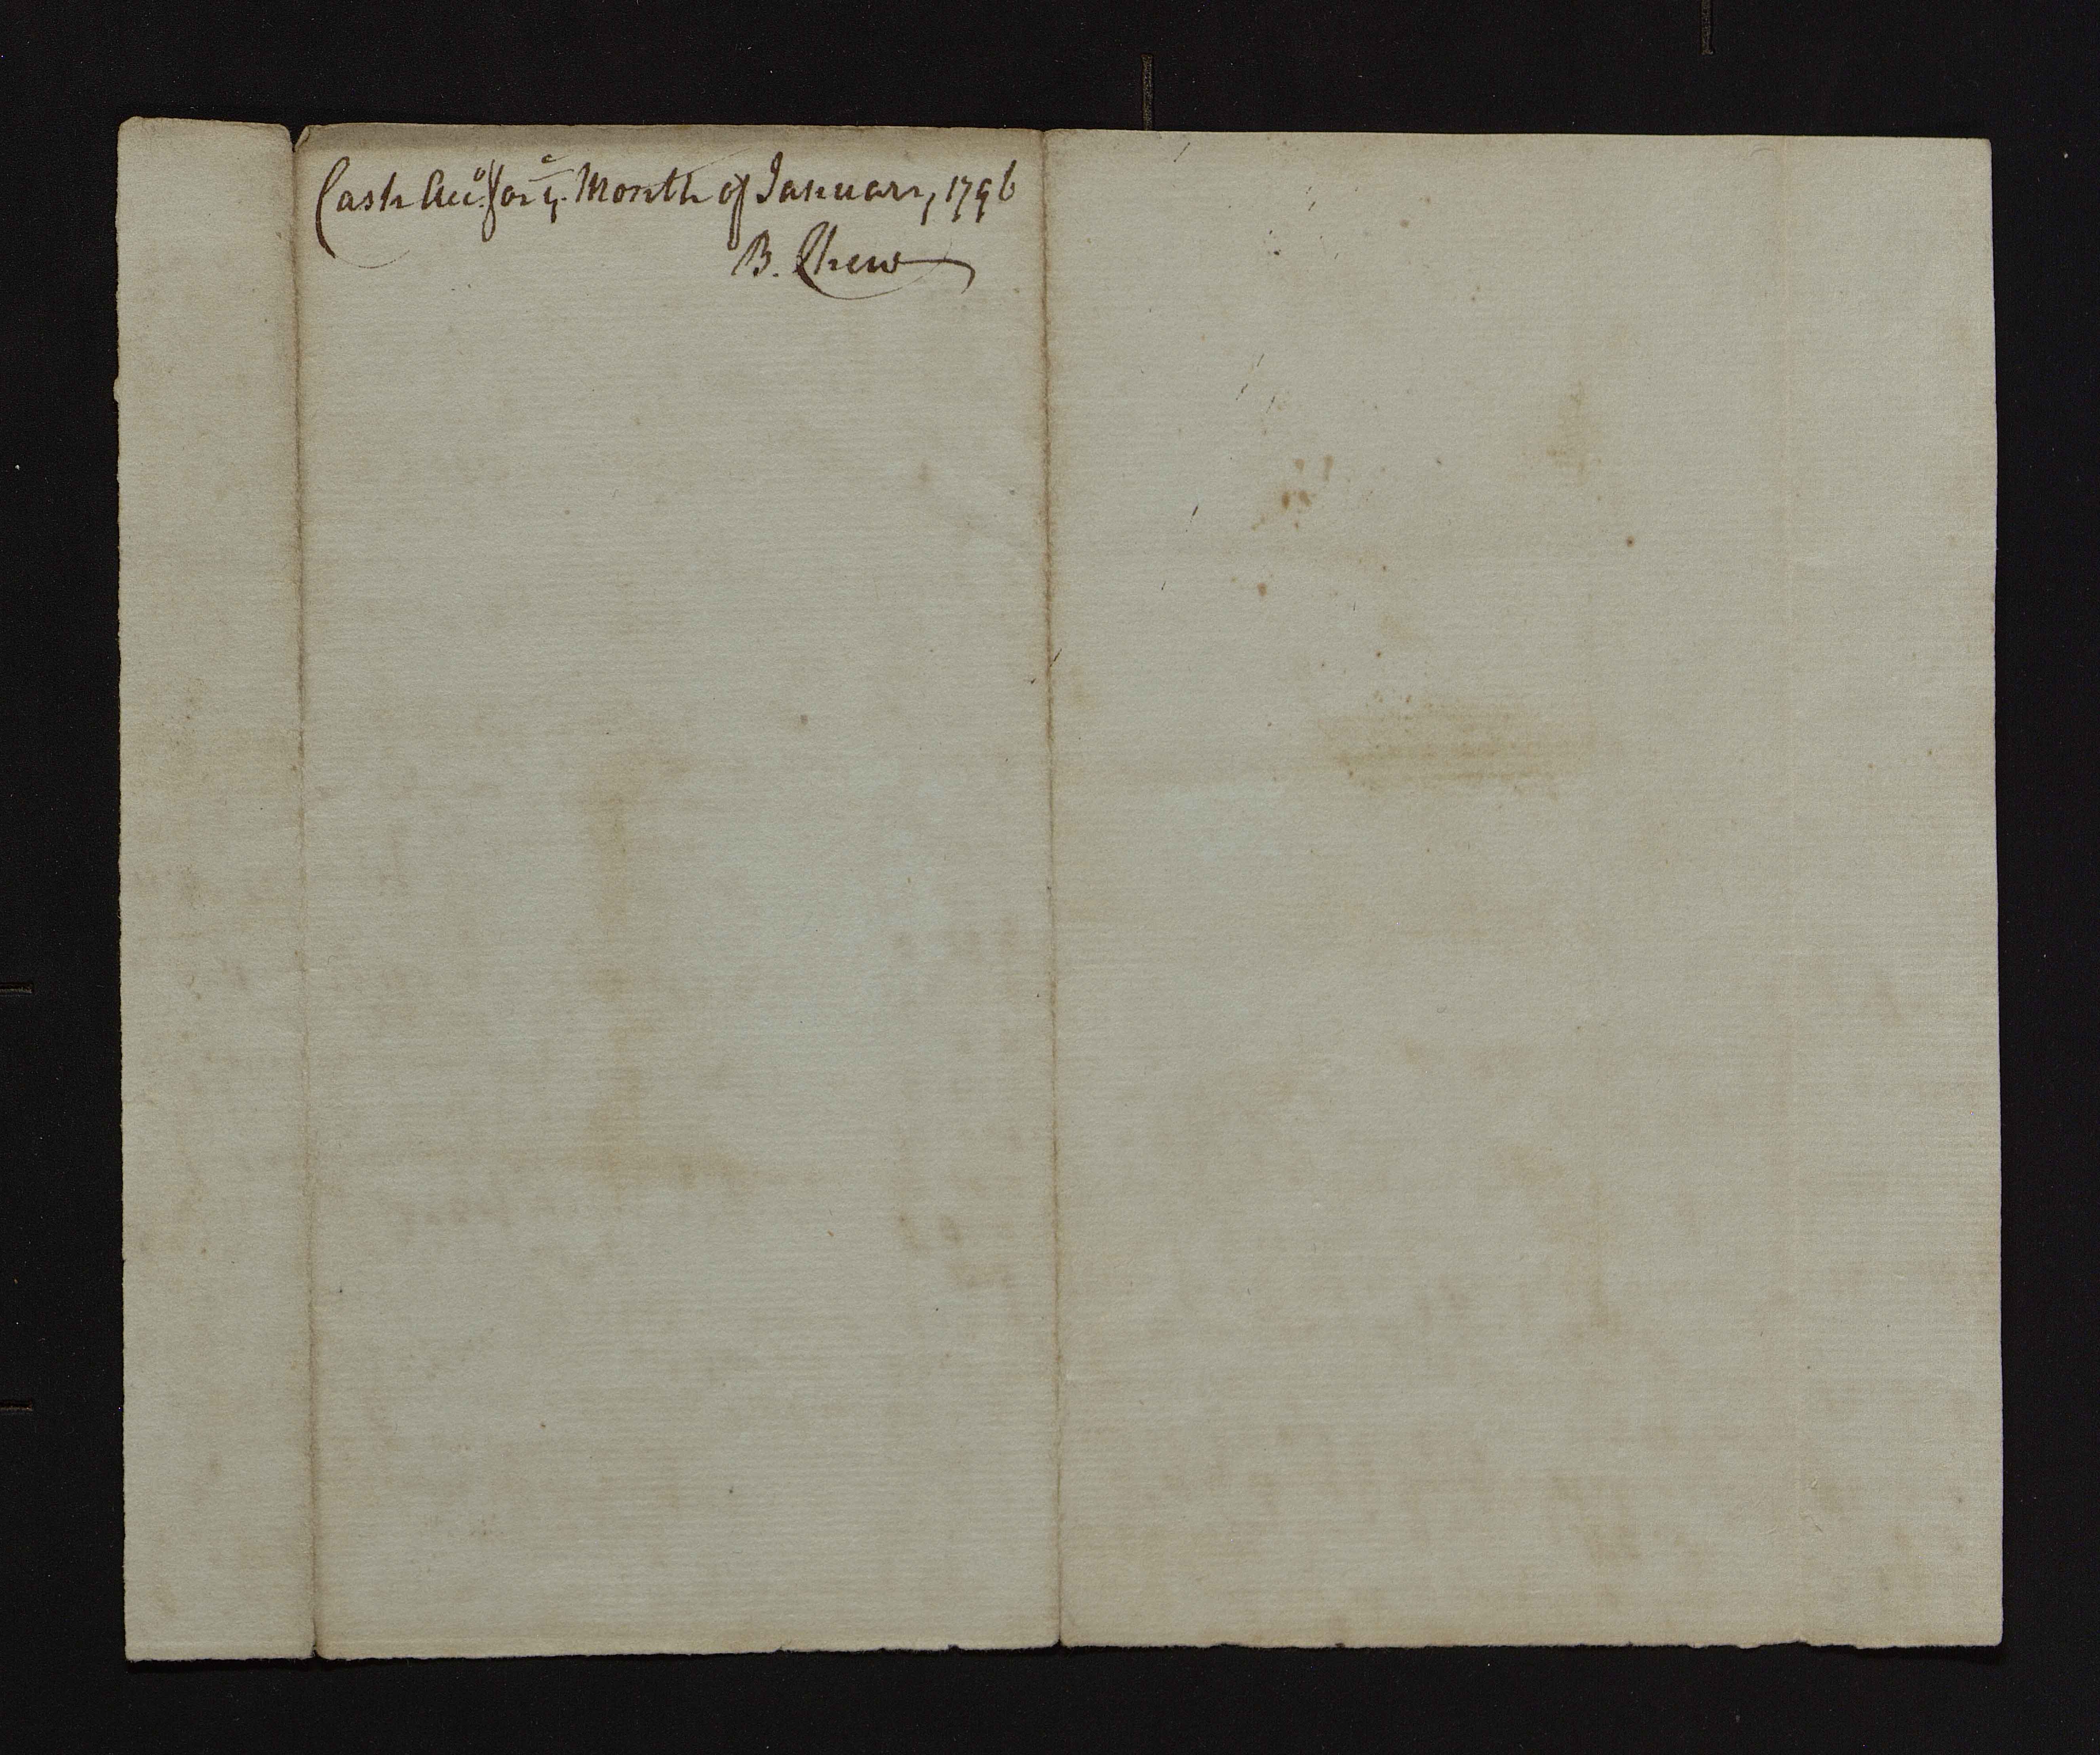 Cash Acc.º for yᵉ Month of January 1796
B. Chew